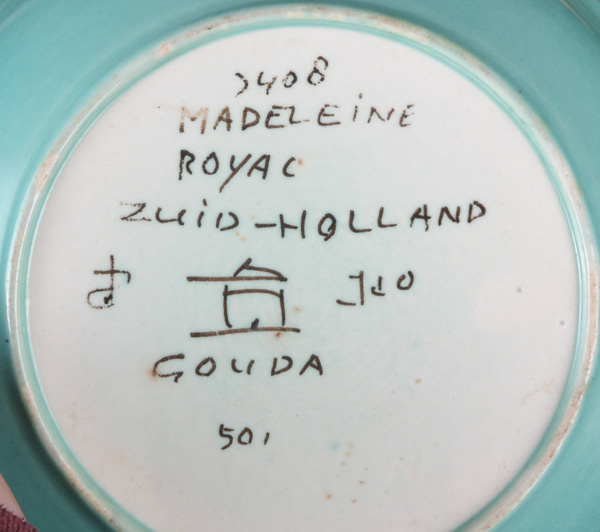 2408
MADELEINE
ROYAL
ZUID-HOLLAND
GOUDA
501